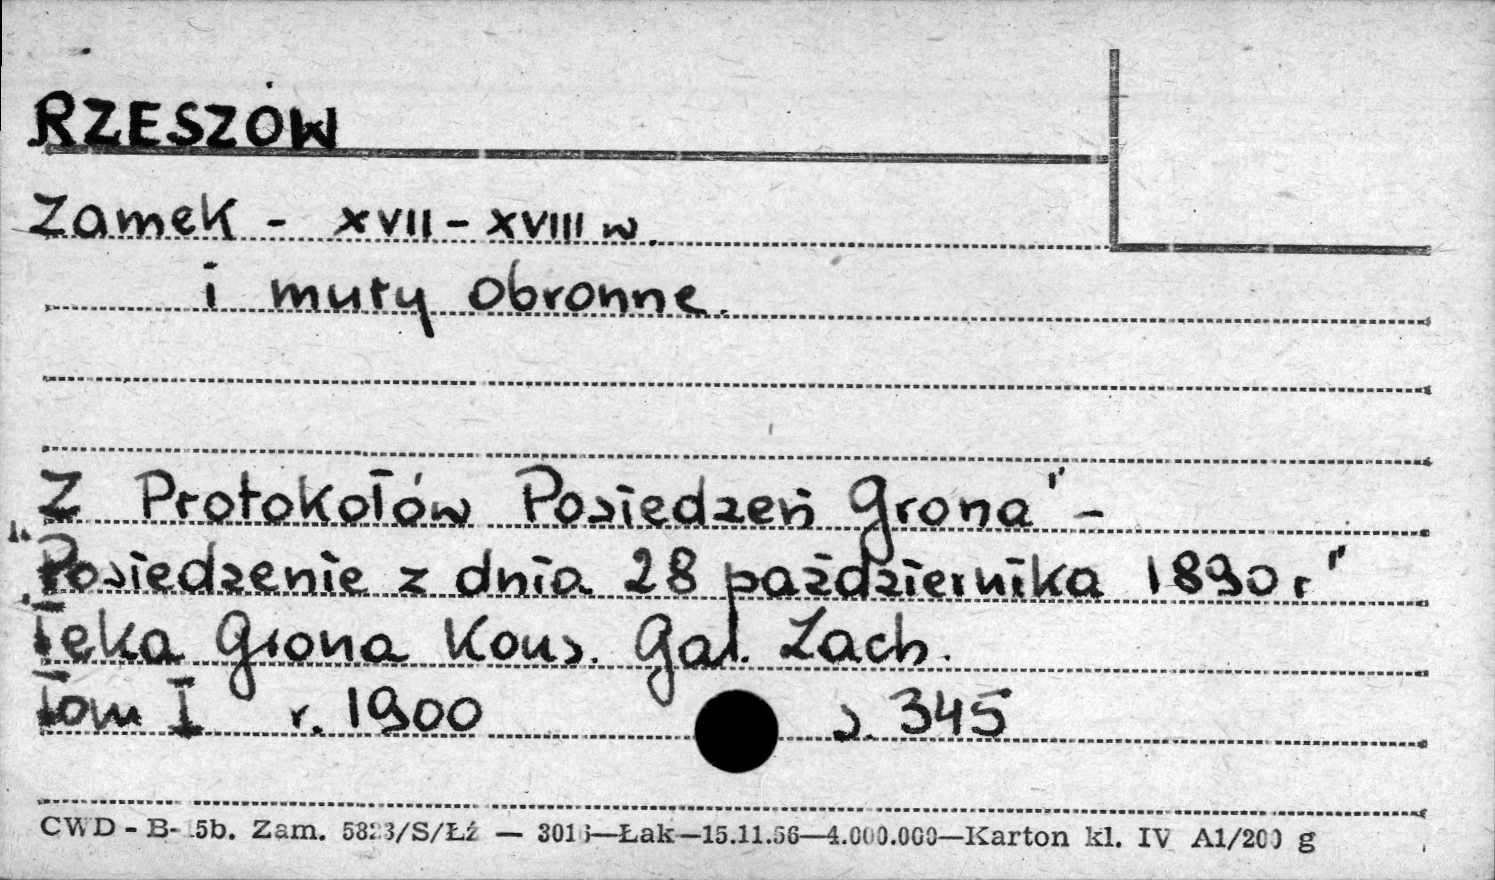 RZESZÓW
Zamek - XVII - XVIII w.
i mury obronne.
Z Protokołów Posiedzeń Grona" -
"Posiedzenie z dnia 28 października 1890 r"
Teka Grona Kons. Gal. Zach.
Tom I r. 1900 s. 345
CWD - B- 5b. Zam. 5823/S/Łź — 3016—Łak—15.11.56—4.000.000—Karton kl. IV A1/200 g